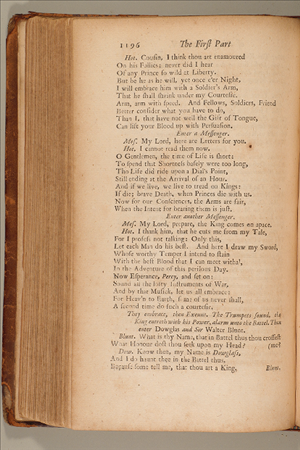 1196 The First Part
Hot. Cousin, I think thou art enamoured
On his Follies; never did I hear
Of any Prince so wild at Liberty.
But be he as he will, yet once e'er Night,
I will embrace him with a Soldier's Arm,
That he shall shrink under my Courtesie.
Arm, arm with speed. And Fellows, Soldiers, Friends
Better consider what you have to do,
Than I, that have not well the Gift of Tongue,
Can lift your Blood up with Perswasion.
Enter a Messenger.
Mes. My Lord, here are Letters for you.
Hot. I cannot read them now.
O Gentlemen, the time of Life is short;
To spend that Shortness basely were too long,
Tho Life did ride upon a Dial's Point,
Still ending at the Arrival of an Hour.
And if we live, we live to tread on Kings:
If die; brave Death, when Princes die with us.
Now for our Consciences, the Arms are fair,
When the Intent for bearing them is just.
Enter another Messenger.
Mes. My Lord, prepare, the King comes on apace.
Hot. I thank him, that he cuts me from my Tale,
For I profess not talking: Only this,
Let each Man do his best. And here I draw my Sword,
Whose worthy Temper I intend to stain
With the best Blood that I can meet withal,
In the Adventure of this perilous Day.
Now Esperance, Percy, and set on:
Sound all the lofty Instruments of War,
And by that Musick, let us all embrace:
For Heav'n to Earth, some of us never shall,
A second time do such a courtesie.
They embrace, then Exeunt. The Trumpets sound, the
King entreth with his Power, alarm unto the Battel. Then
enter Dowglas and Sir Walter Blunt.
Blunt. What is thy Name, that in Battel thus thou crossest
What Honour dost thou seek upon my Head? (me?
Dow. Know then, my Name is Dowglass,
And I do haunt thee in the Battel thus,
Because some tell me, that thou art a King.
Blunt.